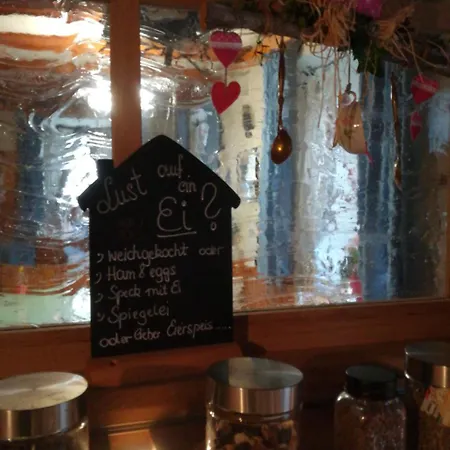 Lust auf
ein
Ei?
, weichgekocht oder
, Ham & eggs
, Speck mit Ei
, Spiegelei
oder lieber Eierspeis ....